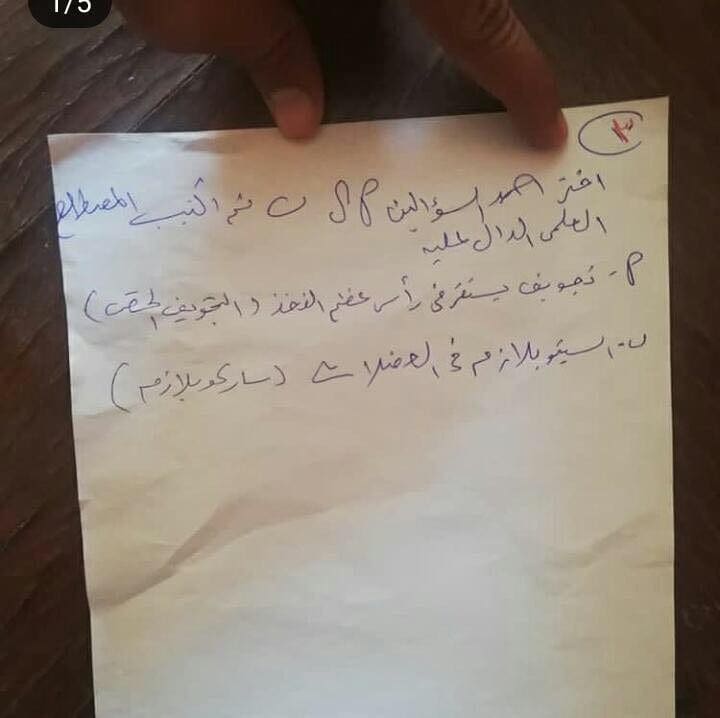 1/5
١٣
اختر احد السؤالين P أو ب ثم اكتب المصطلح
العلمى الدال عليه
P- تجويف يستقر فى رأس عظم الفخذ (التجويف الحقى)
ب- السيتوبلازم فى العضلات (ساركوبلازم)